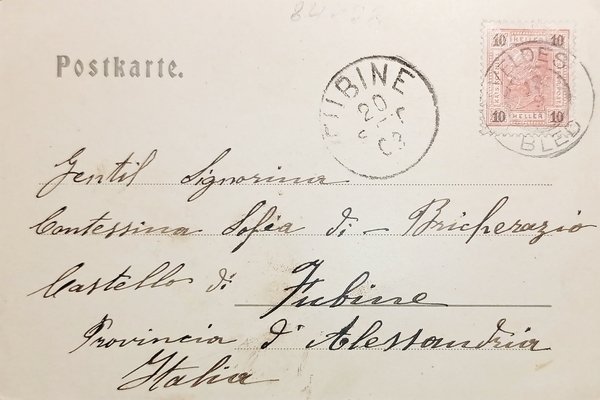 Postkarte.
10 10
HELLER
10 HELLER 10
VELDES
BLED
FUBINE
20
Gentil Signorina
Contessina Sofia di - Bricherazio
Castello di Fubine
Provincia d'Alessandria
Italia